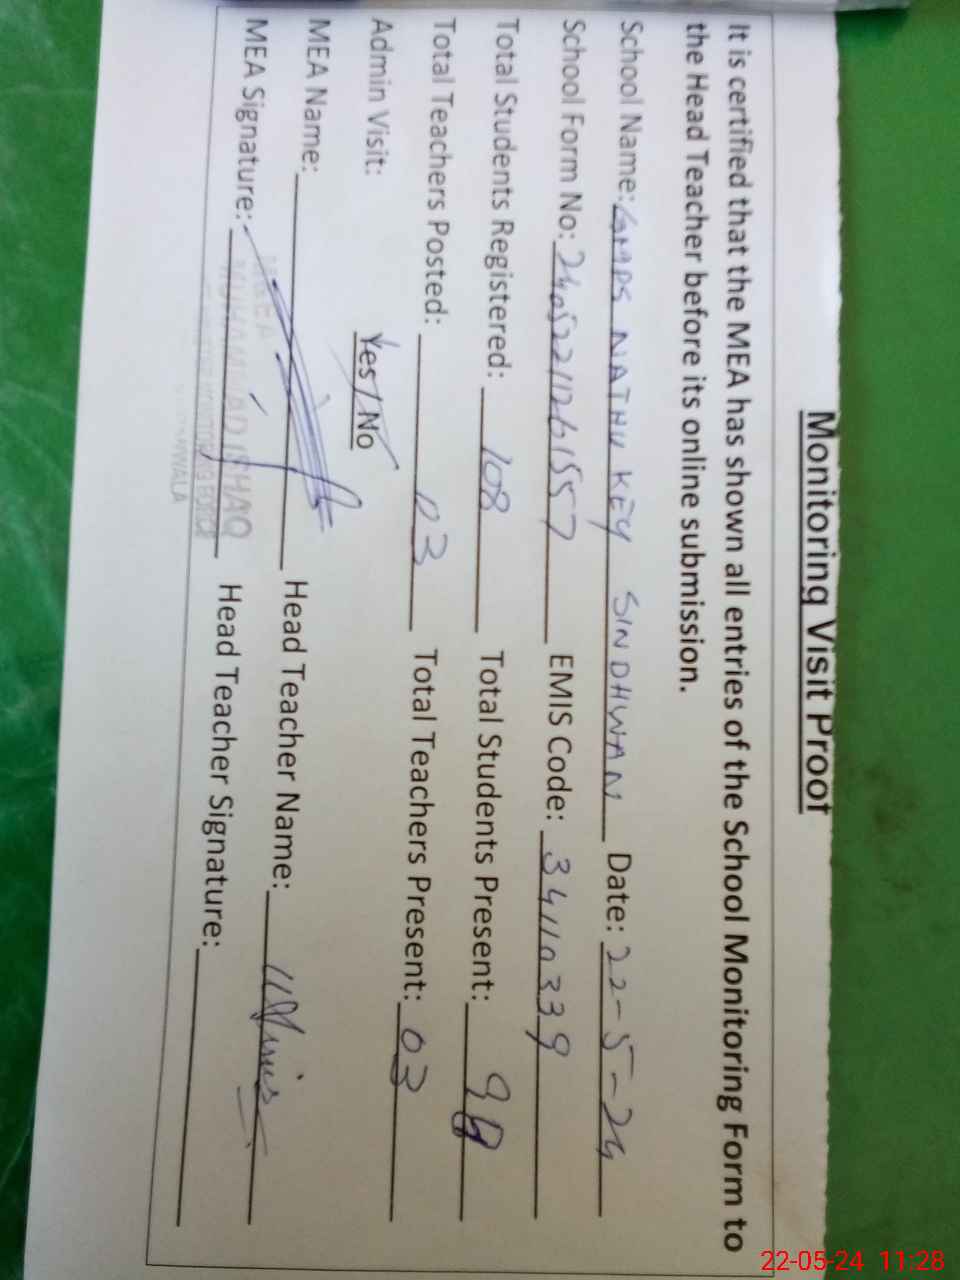 Monitoring Visit Proof
It is certified that the MEA has shown all entries of the School Monitoring Form to
the Head Teacher before its online submission.
School Name: GMPS NATHU KEY SINDHWAN Date: 22-5-24
School Form No: EMIS Code: 34110339
Total Students Registered: 108 Total Students Present:
Total Teachers Posted: 03 Total Teachers Present: 03
Admin Visit: Yes / No
MEA Name: Head Teacher Name:
MEA Signature: Head Teacher Signature:
MUHAMMAD ISHAQ
22-05-24 11:28